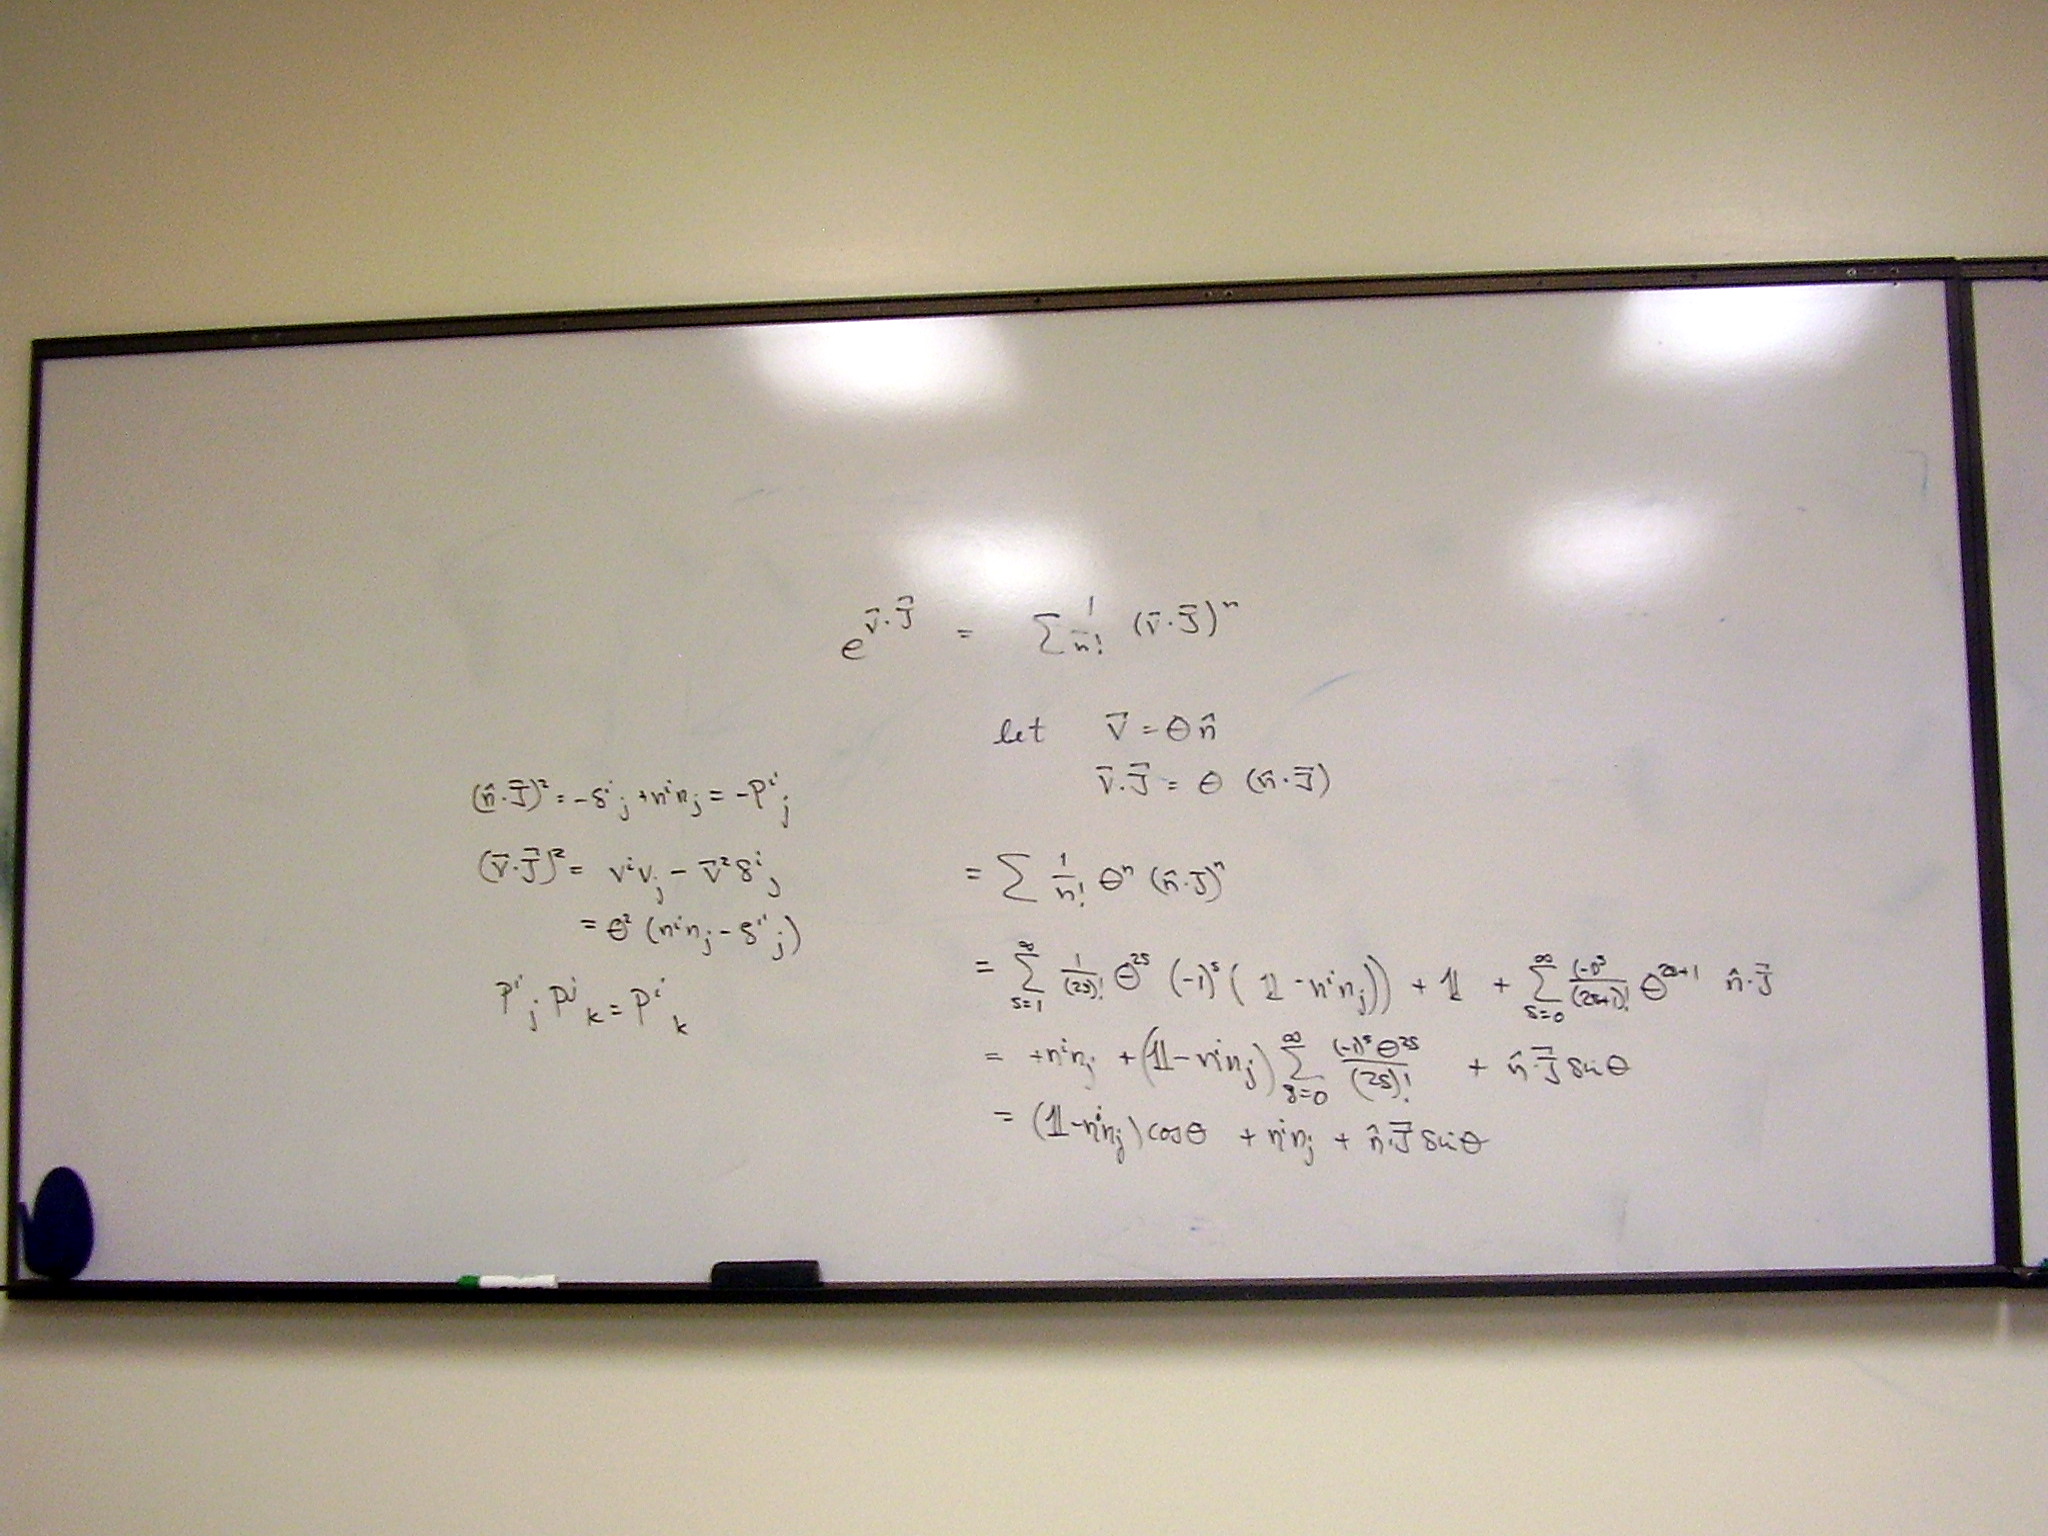 e^{\vec{v}·\vec{J}} = Σ 1/n! (\vec{v}·\vec{J})^n
let \vec{v} = θ n̂
\vec{v}·\vec{J} = θ (n̂·\vec{J})
(n̂·\vec{J})² = -δ^i_j + n^i n_j = -P^i_j
(\vec{v}·\vec{J})² = v^i v_j - \vec{v}² δ^i_j
= θ² (n^i n_j - δ^i_j)
P^i_j P^j_k = P^i_k
= Σ 1/n! θ^n (n̂·\vec{J})^n
= Σ_{s=1}^∞ 1/(2s)! θ^{2s} (-1)^s (𝟙 - n^i n_j)) + 𝟙 + Σ_{s=0}^∞ (-1)^s/(2s+1)! θ^{2s+1} n̂·\vec{J}
= +n^i n_j + (𝟙 - n^i n_j) Σ_{s=0}^∞ (-1)^s θ^{2s}/(2s)! + n̂·\vec{J} sin θ
= (𝟙 - n^i n_j) cos θ + n^i n_j + n̂·\vec{J} sin θ